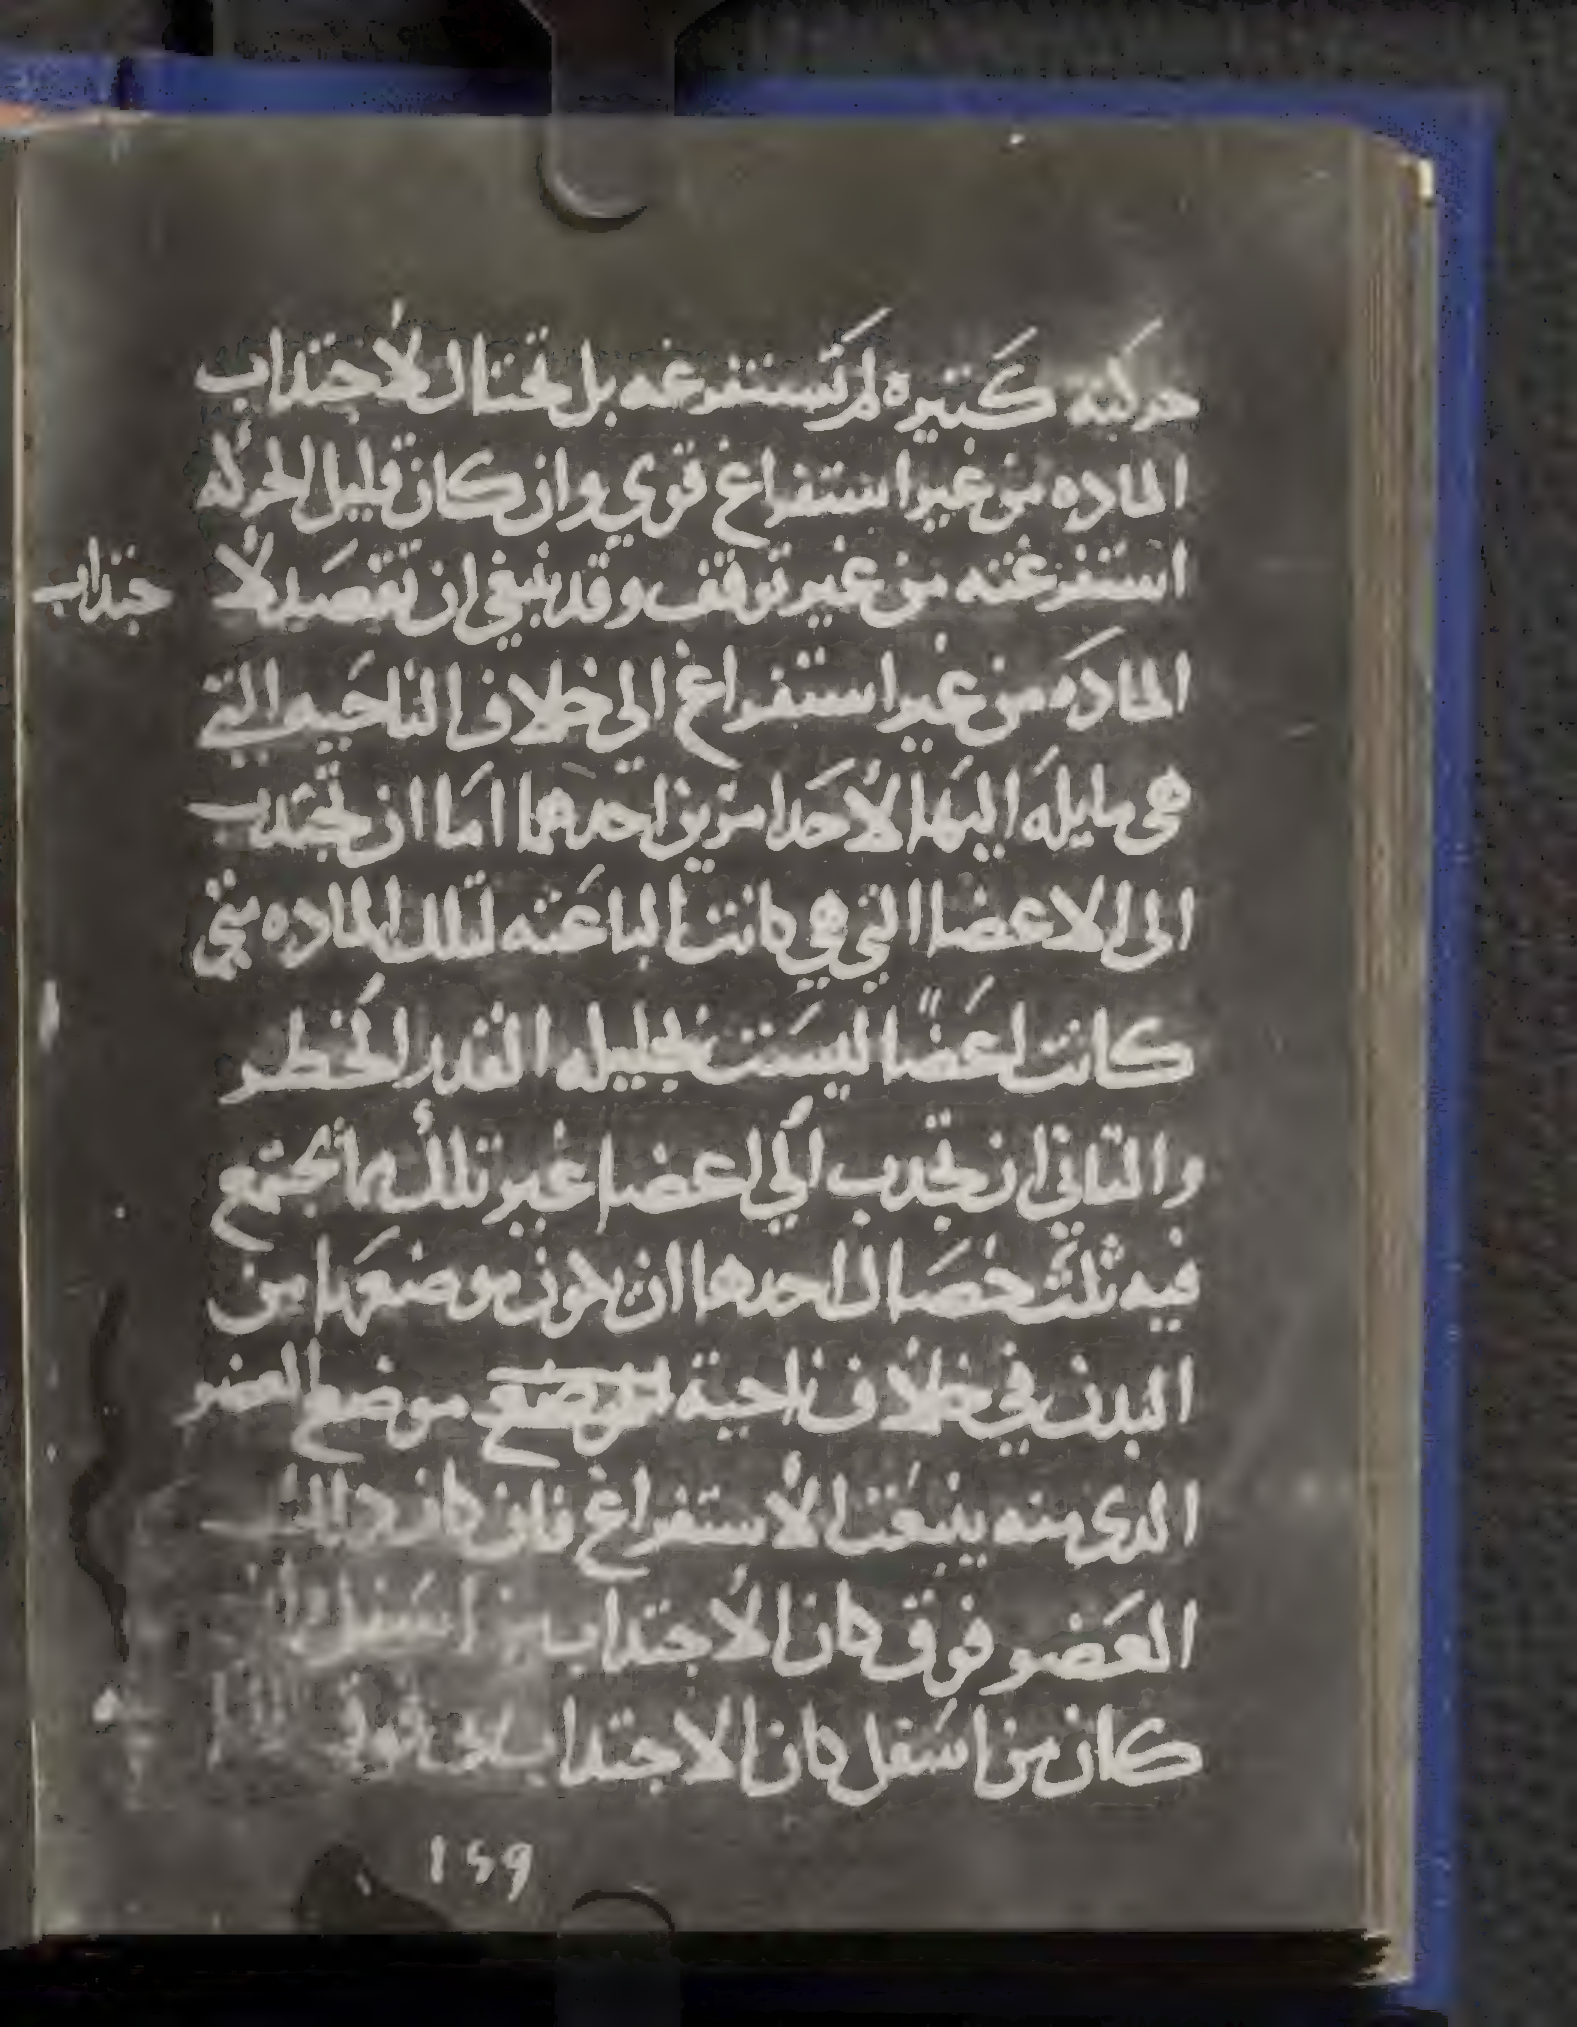 حركته كتيره لم تستفرغه بل تحتال لاجتداب
الماده من غير استفراغ قوي وان كان قليل الحركه
استفرغته من غير توقف وقد ينبغي ان تقصد لا
جتداب
الماده من غير استفراغ الي خلاف الناحيه التي
هى مايله اليها لاحد امرين احدهما اما ان تجتدب
الى الاعضا التي هي كانت الباعته لتلك الماده متي
كانت اعضًا ليست بجليله القدر الخطر
والتاني ان تجدب الي اعضا غير تلك مما يجتمع
فيه ثلث خصال احدها ان يكون موضعها من
البدن في خلاف ناحية موضع العضو
الدى منه ينبعت الاستفراغ فان كان
العضو فوق كان الاجتداب من اسفل
كان من اسفل كان الاجتداب الى فوق
١٤٩